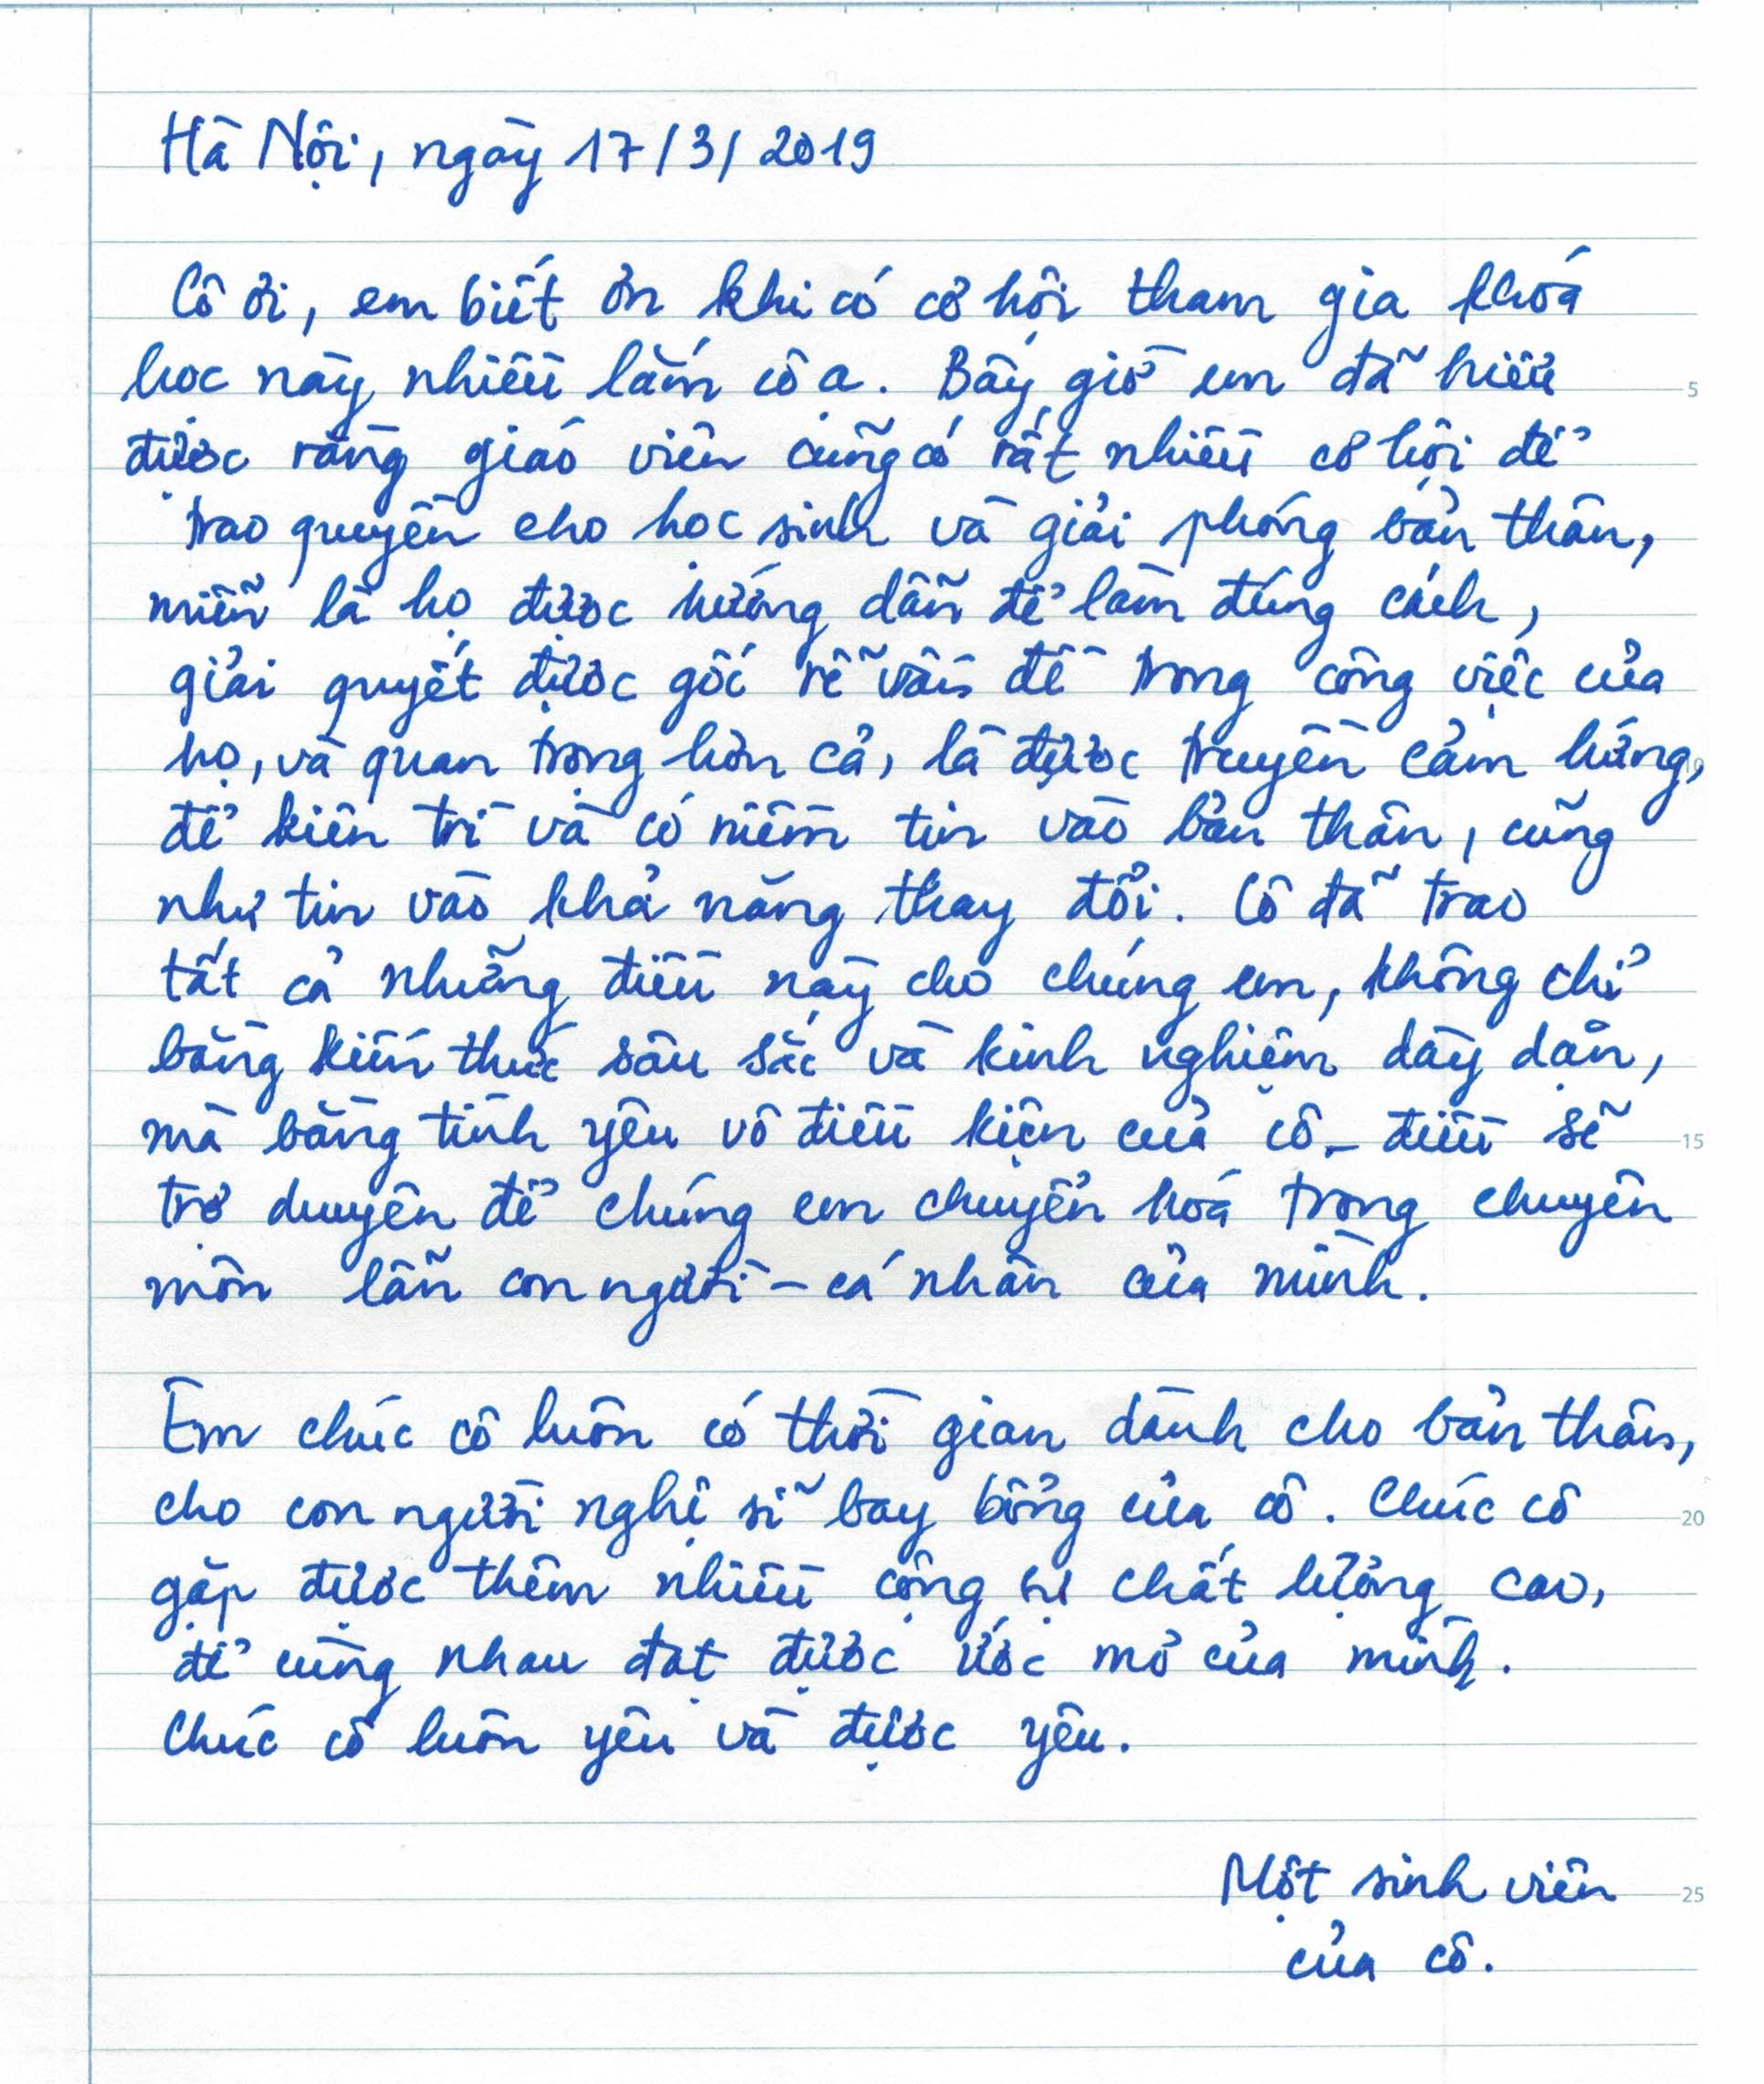 Hà Nội, ngày 17/3/2019
Cô ơi, em biết ơn khi có cơ hội tham gia khoá
học này nhiều lắm cô ạ. Bây giờ em đã hiểu
được rằng giáo viên cũng có rất nhiều cơ hội để
trao quyền cho học sinh và giải phóng bản thân,
miễn là họ được hướng dẫn để làm đúng cách,
giải quyết được gốc rễ vấn đề trong công việc của
họ, và quan trọng hơn cả, là được truyền cảm hứng,
để kiên trì và có niềm tin vào bản thân, cũng
như tin vào khả năng thay đổi. Cô đã trao
tất cả những điều này cho chúng em, không chỉ
bằng kiến thức sâu sắc và kinh nghiệm dày dạn,
mà bằng tình yêu vô điều kiện của cô - điều sẽ
trợ duyên để chúng em chuyển hoá trong chuyên
môn lẫn con người - cá nhân của mình.
Em chúc cô luôn có thời gian dành cho bản thân,
cho con người nghệ sĩ bay bổng của cô. Chúc cô
gặp được thêm nhiều cộng sự chất lượng cao,
để cùng nhau đạt được ước mơ của mình.
Chúc cô luôn yêu và được yêu.
Một sinh viên
của cô.
5
15
20
25